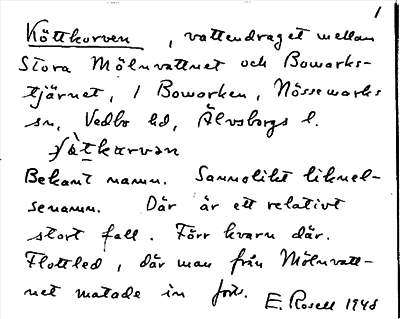 1
Köttkorven, vattendraget mellan
Stora Mölnvattnet och Bowarks-
tjärnet, i Bowarken, Nössemarks
sn, Vedbo hd, Älvsborgs l.
Bekant namn. Sannolikt liknel-
senamn. Där är ett relativt
stort fall. Förr kvarn där.
Flottled, där man från Mölnvatt-
net matade in
E. Rosell 1948